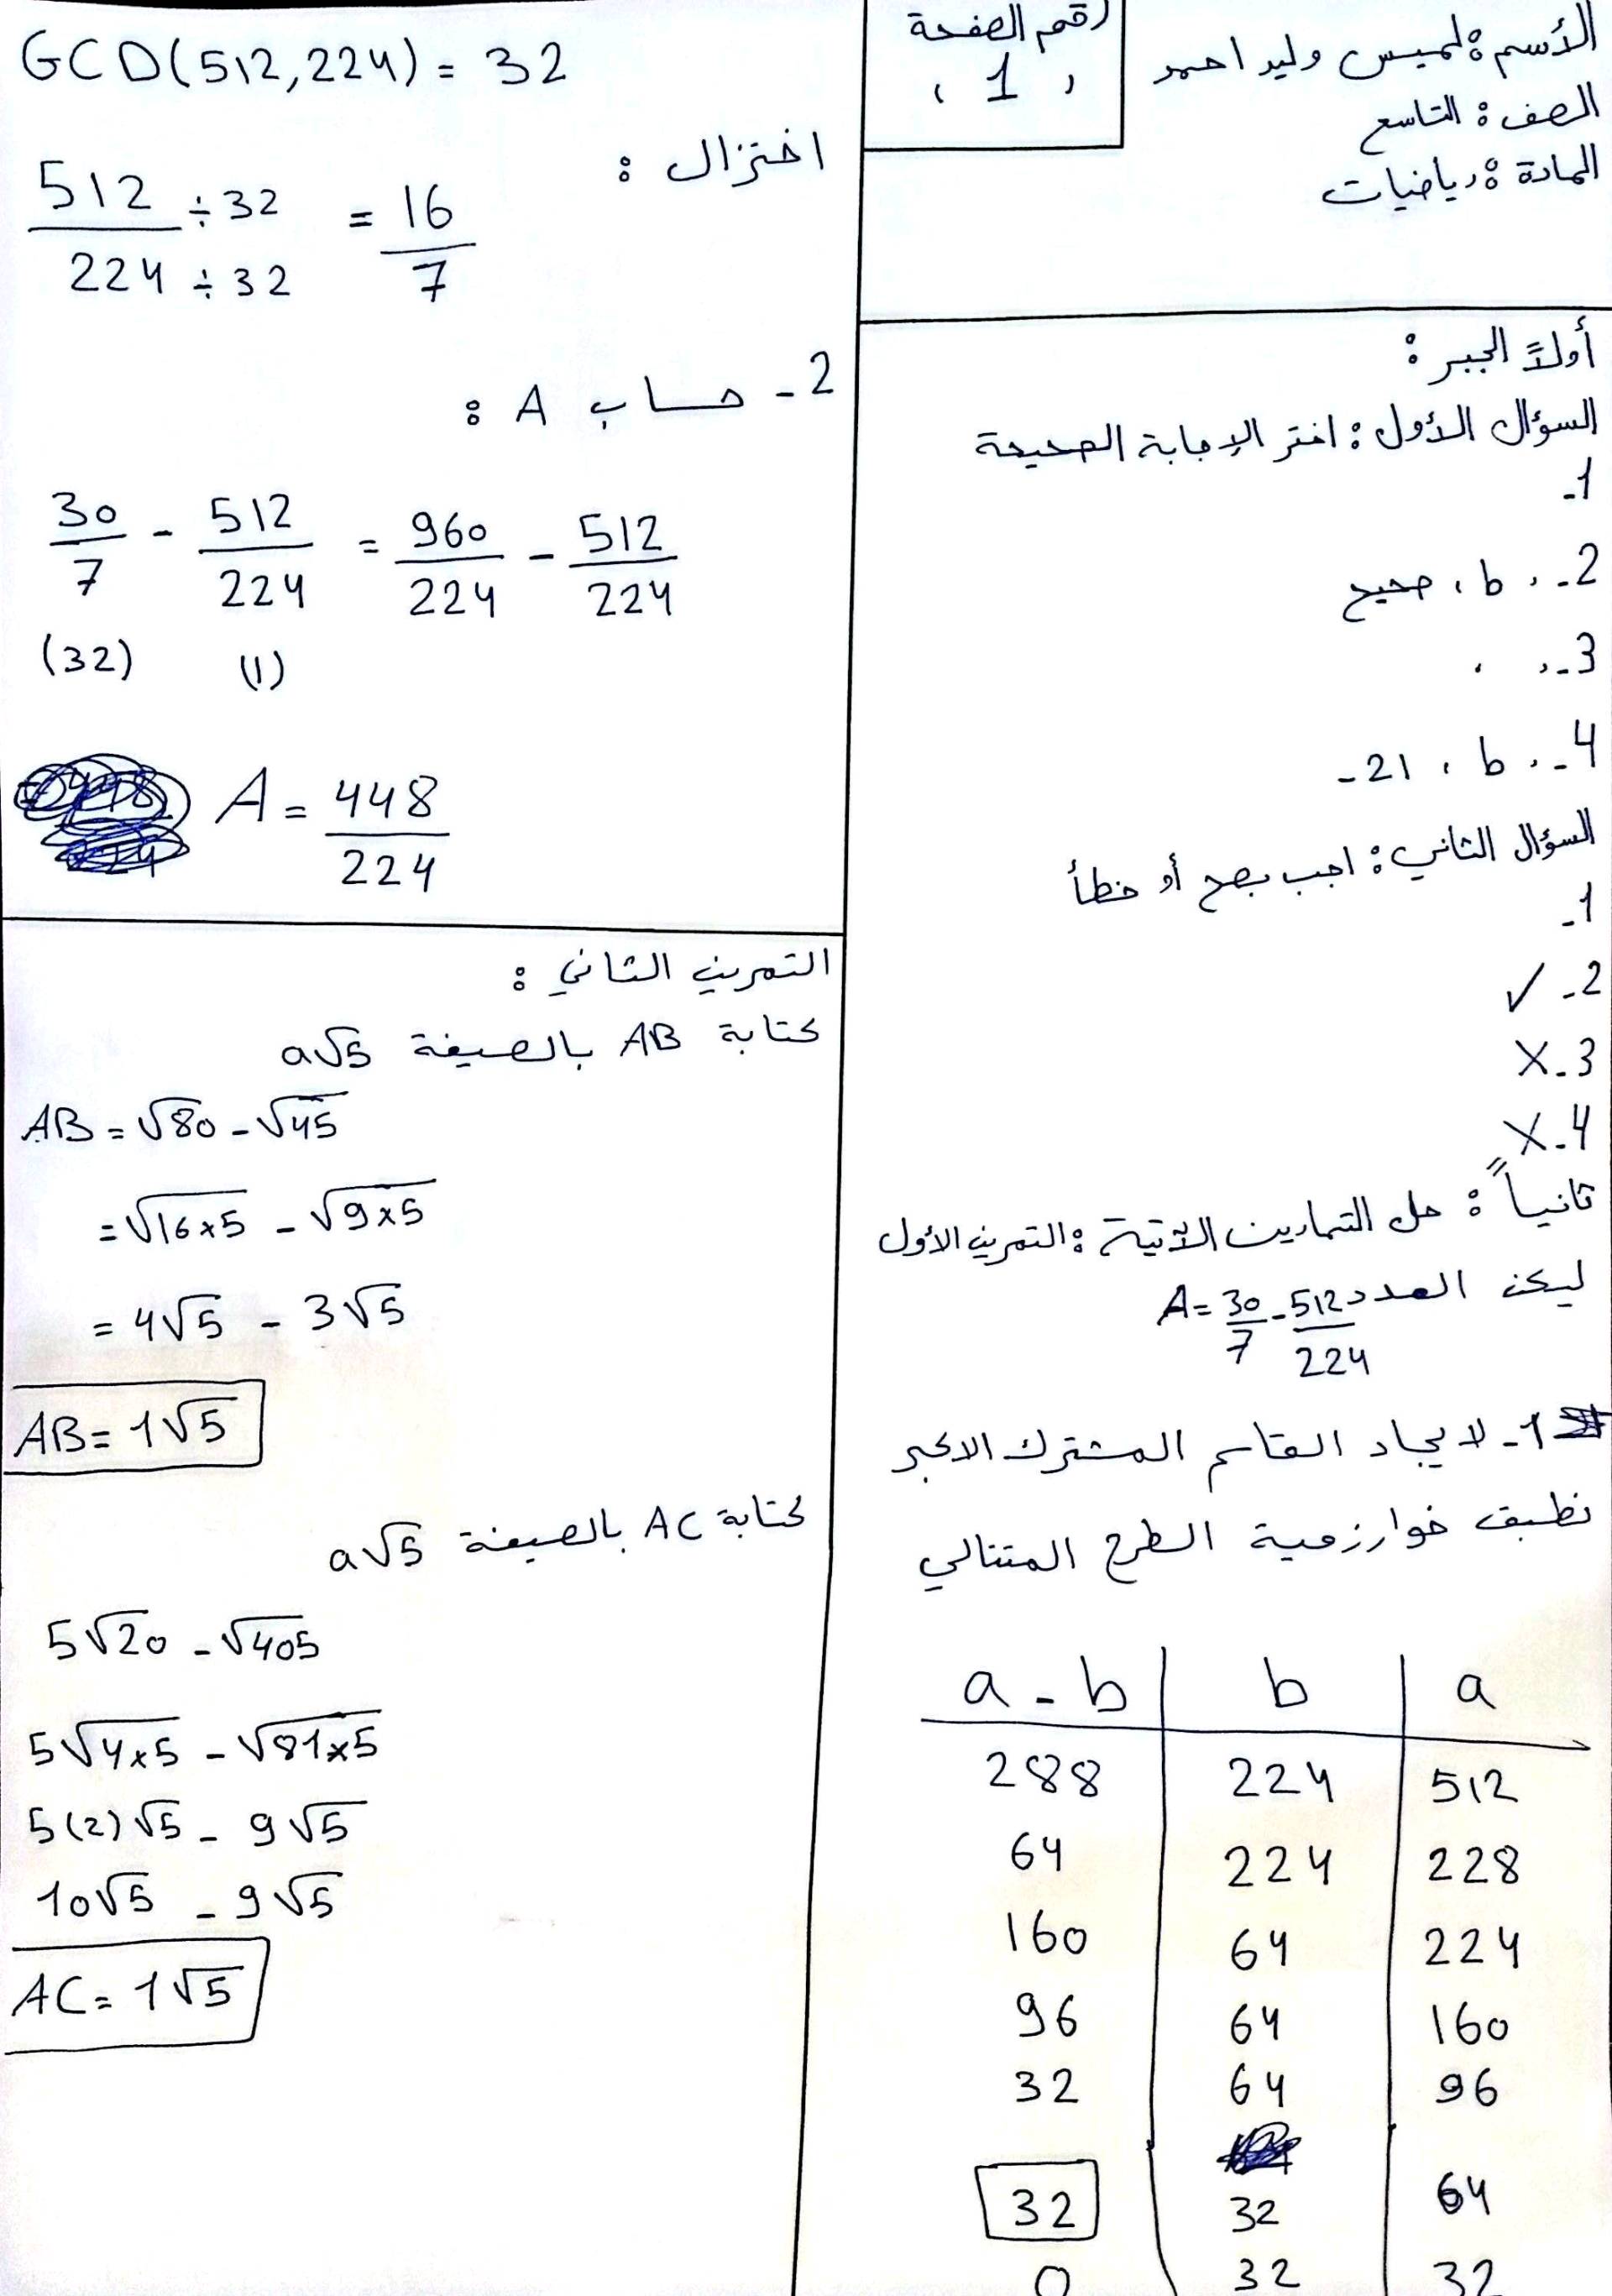 الأسم : لميس وليد احمد
الصف : التاسع
المادة : رياضيات
رقم الصفحة
، 1 ،
أولاً الجبر :
السؤال الأول : اختر الإجابة الصحيحة
1-
2- ، b ، صحيح
3- ، ،
4- ، b ، 21-
السؤال الثاني : اجب بصح أو خطأ
1-
2- ✓
3- X
4- X
ثانياً : حل التمارين الآتية : التمرين الأول
ليكن العدد A = 30/7 - 512/224
1- لايجاد القاسم المشترك الاكبر
نطبق خوارزمية الطرح المتتالي
a - b | b | a
288 | 224 | 512
64 | 224 | 228
160 | 64 | 224
96 | 64 | 160
32 | 64 | 96
32 | 32 | 64
0 | 32 | 32
GCD(512,224) = 32
اختزال :
512 ÷ 32 / 224 ÷ 32 = 16/7
2- حساب A :
30/7 - 512/224 = 960/224 - 512/224
(32) (1)
A = 448/224
التمرين الثاني :
كتابة AB بالصيغة a√5
AB = √80 - √45
= √16×5 - √9×5
= 4√5 - 3√5
AB = 1√5
كتابة AC بالصيغة a√5
5√20 - √405
5√4×5 - √81×5
5(2)√5 - 9√5
10√5 - 9√5
AC = 1√5